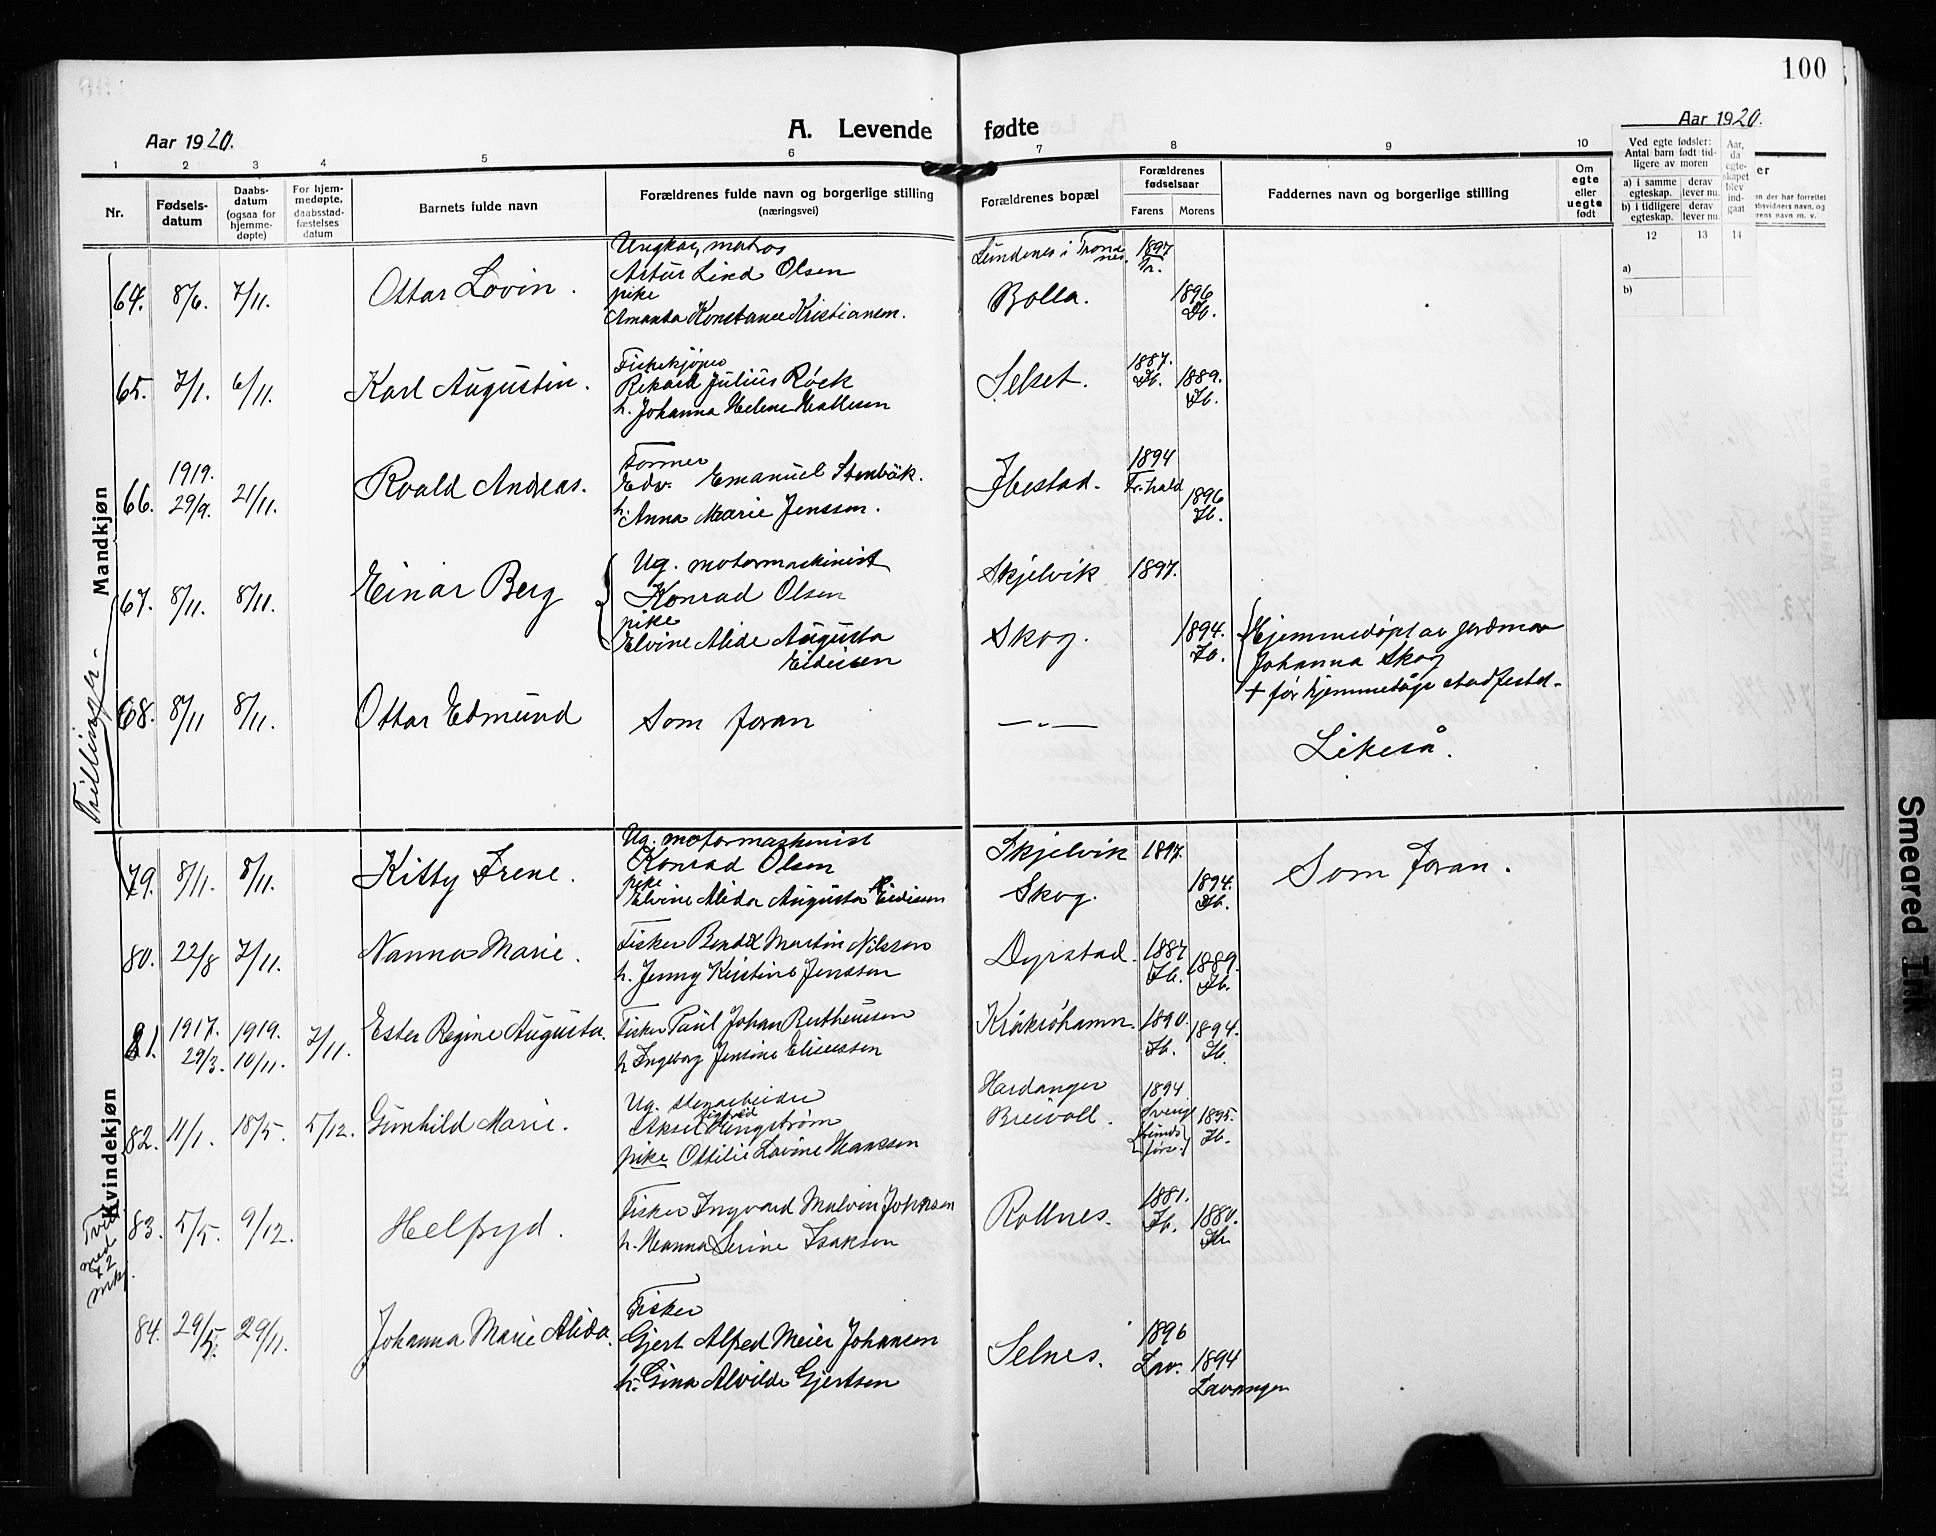 100
Aar 1920.
A. Levende fødte
Aar 1920.
1 2 3 4 5 6 7 8 9 10
Nr.
Fødsels-
datum
Daabs-
datum
(ogsaa for
hjemme-
døpte)
For hjem-
medøpte.
daabsstad-
fæstelses
datum
Barnets fulde navn
Forældrenes fulde navn og borgerlige stilling
(næringsvei)
Forældrenes bopæl
Forældrenes
fødselsaar
Farens Morens
Faddernes navn og borgerlige stilling
Om
egte
eller
uegte
født
Ved egte fødsler:
Antal barn født tid-
ligere av moren
a) i samme
egteskap.
derav
lever nu.
b) i tidligere
egteskap.
derav
lever nu.
Aar,
da
egte-
skapet
blev
ind-
gaat
12 13 14
a)
b)
Mandkjøn
Ungkar, matros
64. 8/6. 7/11. Ottar Lovin. Artur Lind Olsen
Lundenes i Trondnes. 1897 Tr.
pike
Amanda Konstance Kristiansen.
Bolla. 1896 Ib.
Fiskekjøper
65. 7/1. 6/11. Karl Augustin. Rikard Julius Röck
h. Johanna Helene
Selset. 1887. Ib. 1889. Ib.
Former
66. 1919. 29/9. 21/11. Roald Andreas. Edv. Emanuel Stenbäk.
h. Anna Marie Jenssen.
Ibestad. 1894 Fr.hald 1896 Ib.
Ug. motormaskinist
67. 8/11. 8/11. Einar Berg Konrad Olsen
pike
Elvine Alide Augusta
Eidissen
Skjelvik 1897.
Skog. 1894. Ib.
Hjemmedøpt av jordmor
Johanna Skog
+ før hjemmedåp stadfestet.
68. 8/11 8/11. Ottar Edmund Som foran —„—
Likeså.
Trillinger.
Kvindekjøn
Ug. motormaskinist
79. 8/11. 8/11. Kitty Irene. Konrad Olsen
pike
Elvine Alida Augusta Eidissen
Skjelvik 1897.
Skog. 1894. Ib.
Som foran.
80. 22/8 7/11. Nanna Marie. Fisker Bendix Martin Nilssen
h. Jenny Kristine Jenssen
Dyrstad. 1887 Ib. 1889. Ib.
81. 1917. 29/3. 1919. 10/11. 7/11. Ester Regine Augusta. Fisker Paul Johan
h. Ingeborg Jensine
Kråkröhamn. 1890. Ib. 1894. Ib.
Ug. stenarbeider
82. 11/1. 18/5. 5/12. Gunhild Marie. Aksel Sigfred
pike Ottilie Lovine Hanssen
Hardanger 1894
Breivoll. 1895. Ib.
83. 5/5. 9/12. Helfryd. Fisker Ingvard Malvin Johnsen
h. Hanna Serine Isaksen
Rollnes. 1881. Ib. 1880. Ib.
Fisker
84. 29/5. 29/11. Johanna Marie Alida. Gjert Alfred Meier Johansen
h. Gina Alvilde Gjertsen
Selnes. 1896 Lav. 1894 Lavangen
Smeared Ink